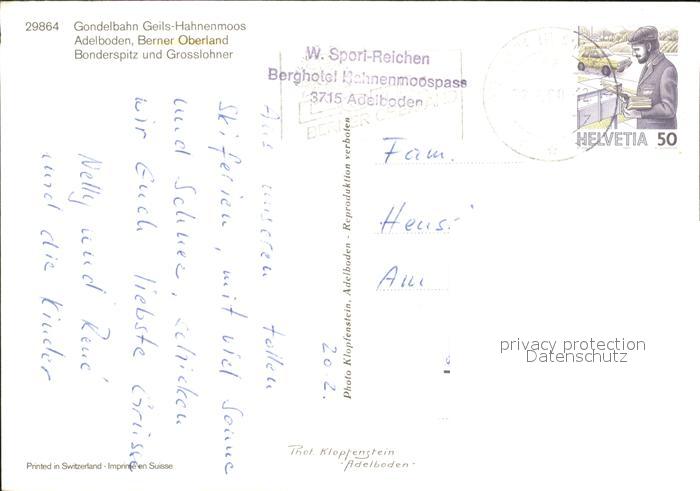 29864 Gondelbahn Geils-Hahnenmoos
Adelboden, Berner Oberland
Bonderspitz und Grosslohner
W. Spori-Reichen
Berghotel Hahnenmoospass
3715 Adelboden
BERNER OBERLAND
HELVETIA 50
Aus unseren tollen
Skiferien, mit viel Sonne
und Schnee, schicken
wir Euch liebste Grüsse
Nelly und René
und die Kinder
20.2.
Photo Klopfenstein, Adelboden - Reproduktion verboten
Fam.
Heusi
Am
privacy protection
Datenschutz
Phot. Klopfenstein
-Adelboden-
Printed in Switzerland - Imprimé en Suisse